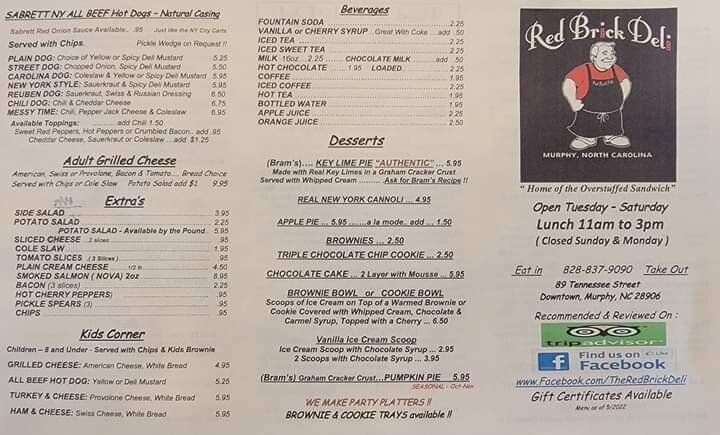 SABRETT NY ALL BEEF Hot Dogs ~ Natural Casing
Sabrett Red Onion Sauce Available.. .95 Just like the NY City Carts
Served with Chips. Pickle Wedge on Request !!
PLAIN DOG: Choice of Yellow or Spicy Deli Mustard 5.25
STREET DOG: Chopped Onion, Spicy Deli Mustard 5.50
CAROLINA DOG: Coleslaw & Yellow or Spicy Deli Mustard 5.95
NEW YORK STYLE: Sauerkraut & Spicy Deli Mustard 5.95
REUBEN DOG: Sauerkraut, Swiss & Russian Dressing 6.50
CHILI DOG: Chili & Cheddar Cheese 6.75
MESSY TIME: Chili, Pepper Jack Cheese & Coleslaw 6.95
Available Toppings: ............. add Chili 1.50
Sweet Red Peppers, Hot Peppers or Crumbled Bacon.. add .95
Cheddar Cheese, Sauerkraut or Coleslaw ... add $1.25
Adult Grilled Cheese
American, Swiss or Provolone, Bacon & Tomato.... Bread Choice
Served with Chips or Cole Slaw Potato Salad add $1. 9.95
Extra's
SIDE SALAD 3.95
POTATO SALAD 2.25
POTATO SALAD - Available by the Pound.. 5.95
SLICED CHEESE 3 slices .95
COLE SLAW 1.95
TOMATO SLICES ( 3 Slices ) .95
PLAIN CREAM CHEESE 1/2 lb 4.50
SMOKED SALMON ( NOVA) 2oz 8.95
BACON (3 slices) 2.25
HOT CHERRY PEPPERS) .95
PICKLE SPEARS (3) .95
CHIPS .95
Kids Corner
Children – 8 and Under - Served with Chips & Kids Brownie
GRILLED CHEESE: American Cheese, White Bread 4.95
ALL BEEF HOT DOG: Yellow or Deli Mustard 5.25
TURKEY & CHEESE: Provolone Cheese, White Bread 5.95
HAM & CHEESE: Swiss Cheese, White Bread 5.95
Beverages
FOUNTAIN SODA 2.25
VANILLA or CHERRY SYRUP ..Great With Coke ...add .50
ICED TEA 2.25
ICED SWEET TEA 2.25
MILK 16oz ... 2.25 ...... CHOCOLATE MILK ..........add .50
HOT CHOCOLATE ....... 1.95 LOADED 2.25
COFFEE 1.95
ICED COFFEE 2.25
HOT TEA 1.95
BOTTLED WATER 1.95
APPLE JUICE 2.25
ORANGE JUICE 2.50
Desserts
(Bram's).... KEY LIME PIE "AUTHENTIC" ... 5.95
Made with Real Key Limes in a Graham Cracker Crust
Served with Whipped Cream ......... Ask for Bram's Recipe !!
REAL NEW YORK CANNOLI ... 4.95
APPLE PIE ... 5.95 .......a la mode.. add ... 1.50
BROWNIES ... 2.50
TRIPLE CHOCOLATE CHIP COOKIE ... 2.50
CHOCOLATE CAKE ... 2 Layer with Mousse ... 5.95
BROWNIE BOWL or COOKIE BOWL
Scoops of Ice Cream on Top of a Warmed Brownie or
Cookie Covered with Whipped Cream, Chocolate &
Carmel Syrup, Topped with a Cherry ... 6.50
Vanilla Ice Cream Scoop
Ice Cream Scoop with Chocolate Syrup ... 2.95
2 Scoops with Chocolate Syrup ... 3.95
(Bram's) Graham Cracker Crust...PUMPKIN PIE 5.95
SEASONAL - Oct-Nov
WE MAKE PARTY PLATTERS !!
BROWNIE & COOKIE TRAYS available !!
Red Brick Deli
MURPHY, NORTH CAROLINA
"Home of the Overstuffed Sandwich"
Open Tuesday – Saturday
Lunch 11am to 3pm
( Closed Sunday & Monday )
Eat in 828-837-9090 Take Out
89 Tennessee Street
Downtown, Murphy, NC 28906
Recommended & Reviewed On :
tripadvisor
Find us on Like
Facebook
www.Facebook.com/TheRedBrickDeli
Gift Certificates Available
Menu as of 5/2022